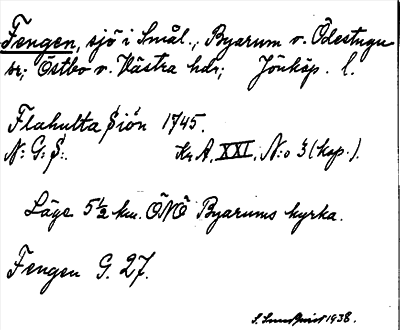 Fengen, sjö i Smål., Byarum o. Ödestugu
sn; Östbo o. Västra hdr; Jönköp. l.
Flahulta Siön 1745.
N: G: S:. Kr A, XXI, N:o 3 (kop.).
Läge 5 1/2 km. ÖNÖ Byarums kyrka.
Fengen G. 27.
S. Lundqvist 1938.